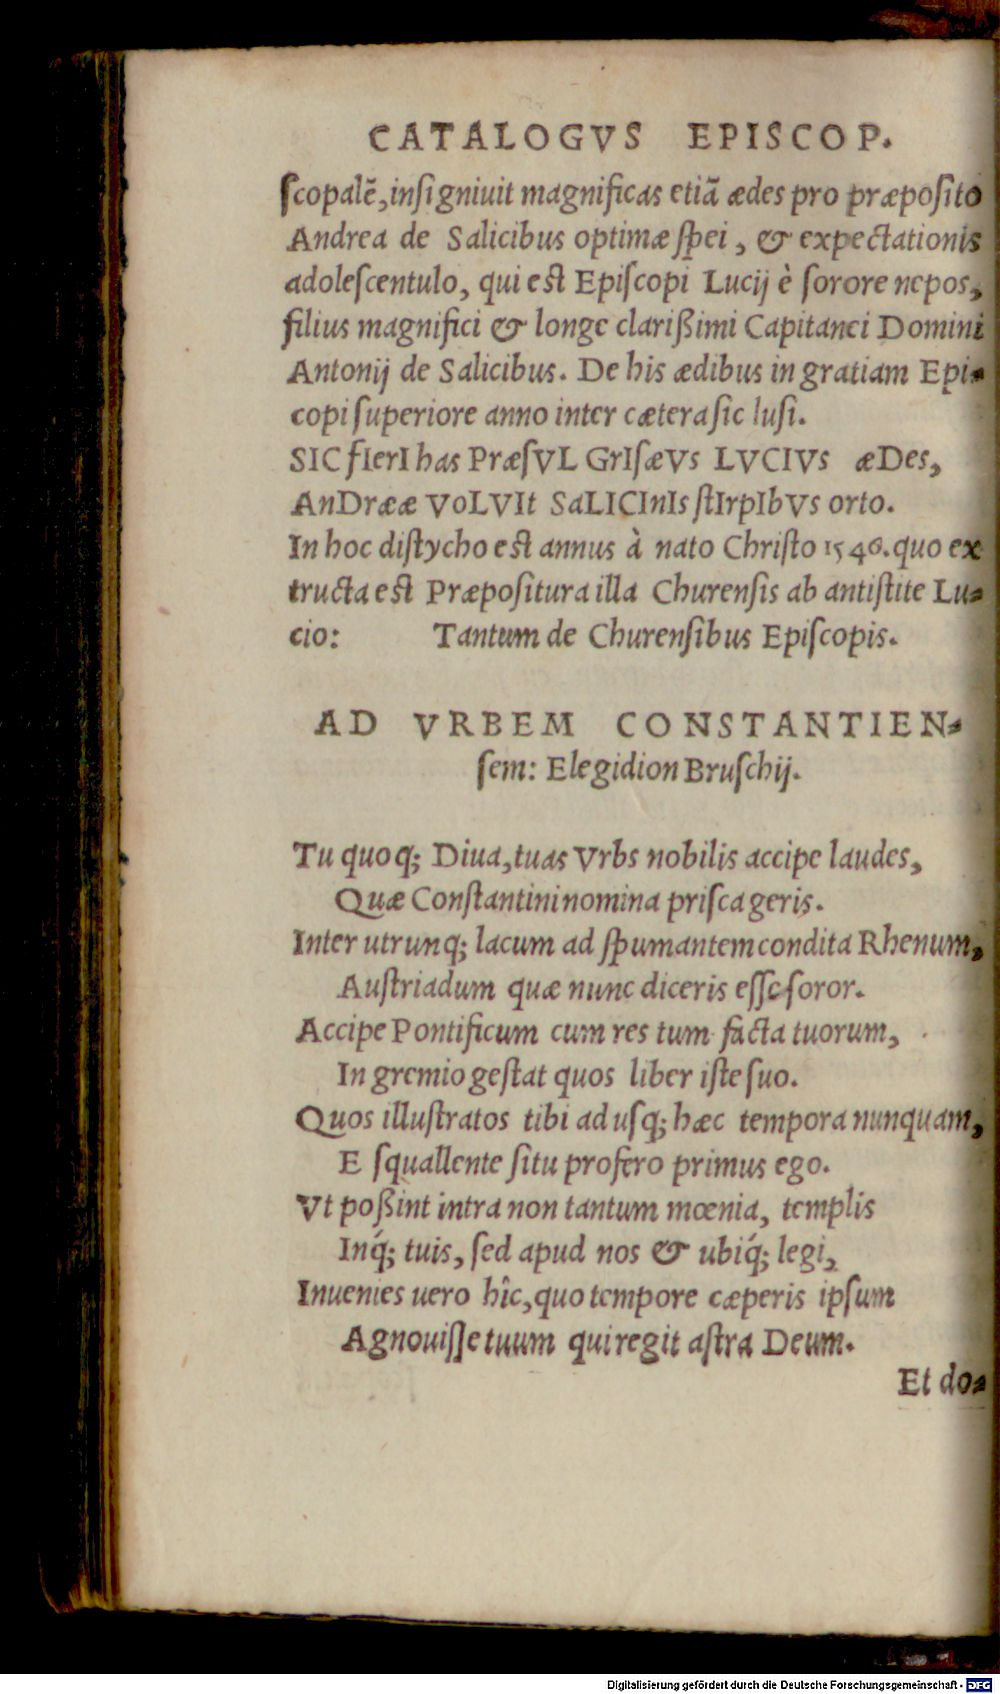 CATALOGVS EPISCOP.
ſcopalẽ, inſigniuit magnificas etiã ædes pro præpoſito
Andrea de Salicibus optimæ ſpei, & expectationis
adoleſcentulo, qui est Epiſcopi Lucij è ſorore nepos,
filius magnifici & longe clarißimi Capitanei Domini
Antonij de Salicibus. De his ædibus in gratiam Epi-
copi ſuperiore anno inter cætera ſic luſi.
SIC fIerI has PræſVL GrIſæVs LVCIVs æDes,
AnDreæ VoLVIt SaLICInIs ſtIrpIbVs orto.
In hoc diſtycho est annus à nato Chriſto 1546. quo ex
tructa est Præpoſitura illa Churenſis ab antiſtite Lu-
cio: Tantum de Churenſibus Epiſcopis.
AD VRBEM CONSTANTIEN-
ſem: Elegidion Bruſchij.
Tu quoq; Diua, tuas Vrbs nobilis accipe laudes,
Quæ Conſtantini nomina priſca geris.
Inter utrunq; lacum ad ſpumantem condita Rhenum,
Auſtriadum quæ nunc diceris eſſe ſoror.
Accipe Pontificum cum res tum facta tuorum,
In gremio geſtat quos liber iſte ſuo.
Quos illuſtratos tibi ad uſq; hæc tempora nunquam,
E ſquallente ſitu profero primus ego.
Vt poßint intra non tantum mœnia, templis
Inq́; tuis, ſed apud nos & ubiq́; legi,
Inuenies uero hîc, quo tempore cæperis ipſum
Agnouiſſe tuum qui regit aſtra Deum.
Et do-
Digitalisierung gefördert durch die Deutsche Forschungsgemeinschaft - DFG